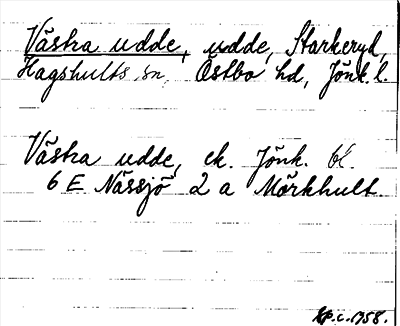 Västra udde, udde, Starkeryd,
Hagshults sn, Östbo hd, Jönk. l.
Västra udde, ek. Jönk. bl.
6 E Nässjö 2 a Mörkhult.
KP.c. 1958.